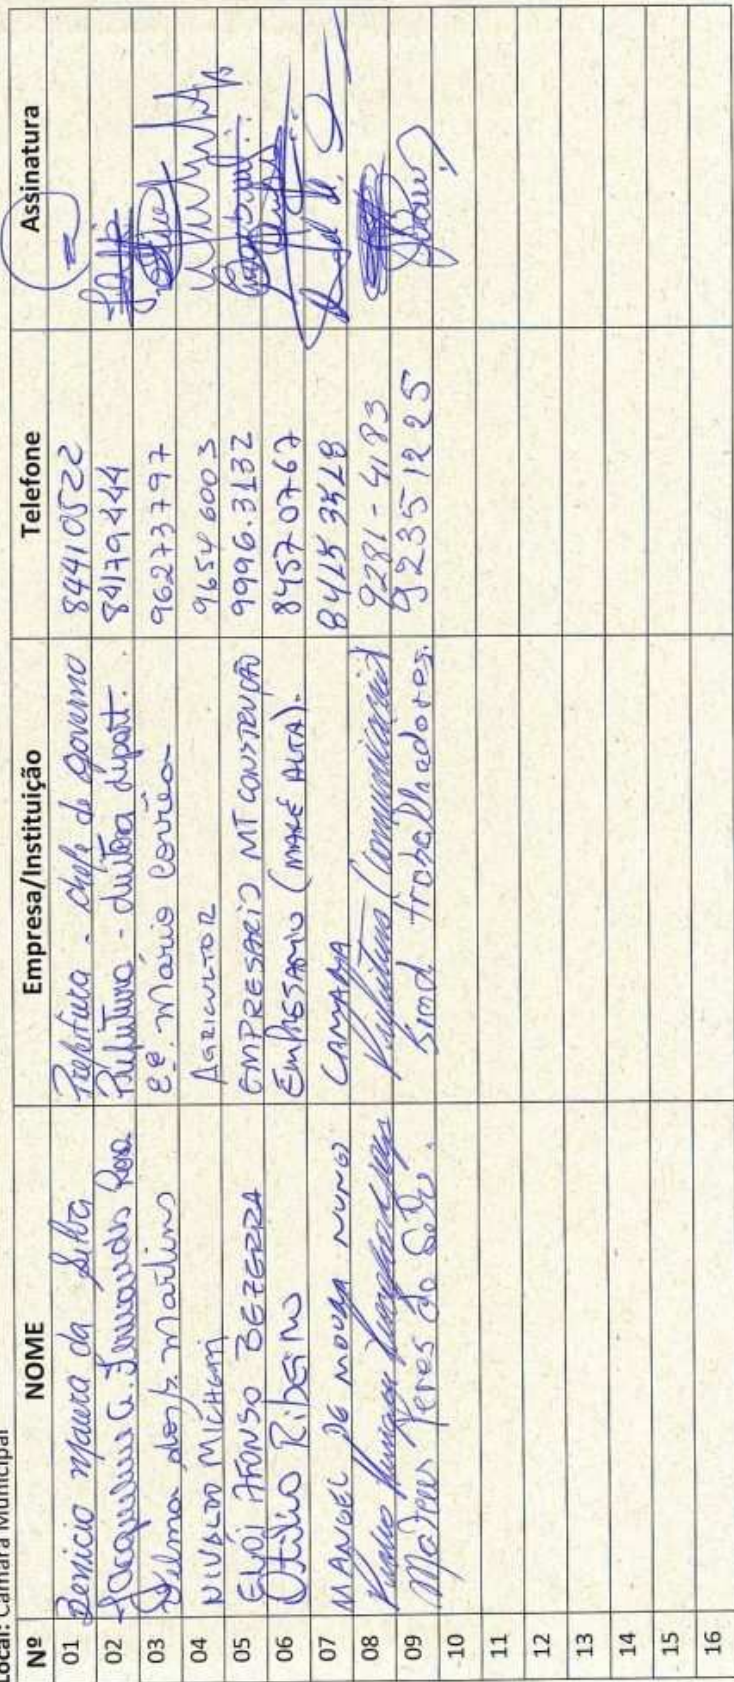 Local: Câmara Municipal
Nº NOME Empresa/Instituição Telefone Assinatura
01 Benicio Moura da Silva Prefeitura - chefe de governo 84410522
02 Jacqueline G. Fernandes Rosa Prefeitura - diretora depart. 84179444
03 Martins E.E. Mário Corrêa 96273797
04 NIVALDO MICHETTI AGRICULTOR 9654 6003
05 ELÓI AFONSO BEZERRA EMPRESARIO MT CONSTRUÇÃO 9996.3132
06 Otilio Ribeiro EMPRESARIO (MARÉ ALTA). 8457 0767
07 MANOEL DE MOURA NUNES CAMARA
08 Prefeitura (Comunicação) 9281-4183
09 Mateus Peres do Sind. trabalhadores. 92351225
10
11
12
13
14
15
16